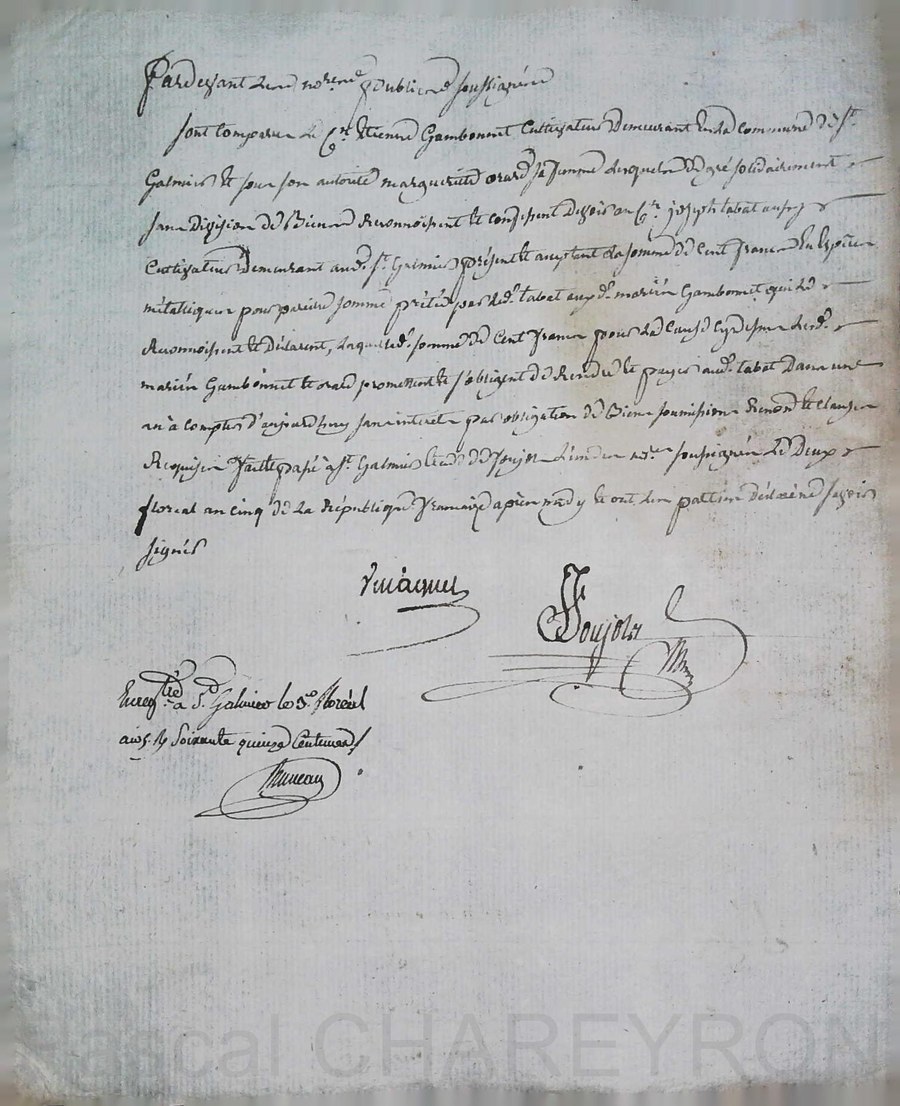 Pardevant Les nores publics soussignés
sont comparus Le Cn Etienne Gambonnet Cultivateur Demeurant En la commune de St
Galmier Et sous son autorité marguerite orard sa femme Lesquels De gré solidairement
sans Division de Biens Reconnoissent Et confessent Devoir au Cn joseph tabat aussy
Cultivateur Demeurant aud. St Galmier présent Et acceptant La somme de Cent francs En Espèces
métalliques pour pareille somme prêtée par led. tabat auxd. mariés Gambonnet qui Le
Reconnoissent Et Déclarent, Laquelle d. somme De Cent francs pour La Cause cydessus Lesd.
mariés Gambonnet Et orard promettent Et s'obligent De Rendre Et payer aud. tabat Dans une
an à compter d'aujourd'huy sans interet par obligation de Biens soumissions Renond. Et clauses
Requises fait Et passé à St Galmier Etude De soujol L'un des nores soussignés Le Deux
floreal an cinq De La République française après mydy Et ont Les parties déclaré ne savoir
signer
Soujol
Enregtré à St Galmier le 5e floréal
an 5. R Soixante quinze Centimes
Pascal CHAREYRON